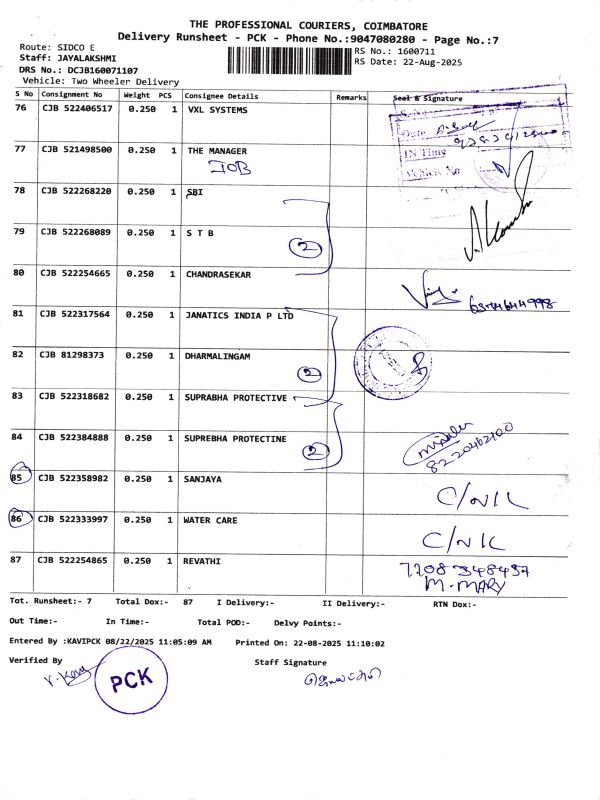 THE PROFESSIONAL COURIERS, COIMBATORE
Delivery Runsheet - PCK - Phone No.:9047080280 - Page No.:7
Route: SIDCO E
Staff: JAYALAKSHMI
DRS No.: DCJB160071107
Vehicle: Two Wheeler Delivery
RS No.: 1600711
RS Date: 22-Aug-2025
S No Consignment No Weight PCS Consignee Details Remarks Seal & Signature
76 CJB 522406517 0.250 1 VXL SYSTEMS
Date
IN Time
Vehicle No
77 CJB 521498500 0.250 1 THE MANAGER
IOB
78 CJB 522268220 0.250 1 SBI
79 CJB 522268089 0.250 1 S T B
2
80 CJB 522254665 0.250 1 CHANDRASEKAR
81 CJB 522317564 0.250 1 JANATICS INDIA P LTD
82 CJB 81298373 0.250 1 DHARMALINGAM
2
83 CJB 522318682 0.250 1 SUPRABHA PROTECTIVE
84 CJB 522384888 0.250 1 SUPREBHA PROTECTINE
2
85 CJB 522358982 0.250 1 SANJAYA
C/NIL
86 CJB 522333997 0.250 1 WATER CARE
C/NIL
87 CJB 522254865 0.250 1 REVATHI
7708348497
M.MARY
Tot. Runsheet:- 7 Total Dox:- 87 I Delivery:- II Delivery:- RTN Dox:-
Out Time:- In Time:- Total POD:- Delvy Points:-
Entered By :KAVIPCK 08/22/2025 11:05:09 AM Printed On: 22-08-2025 11:10:02
Verified By Staff Signature
PCK